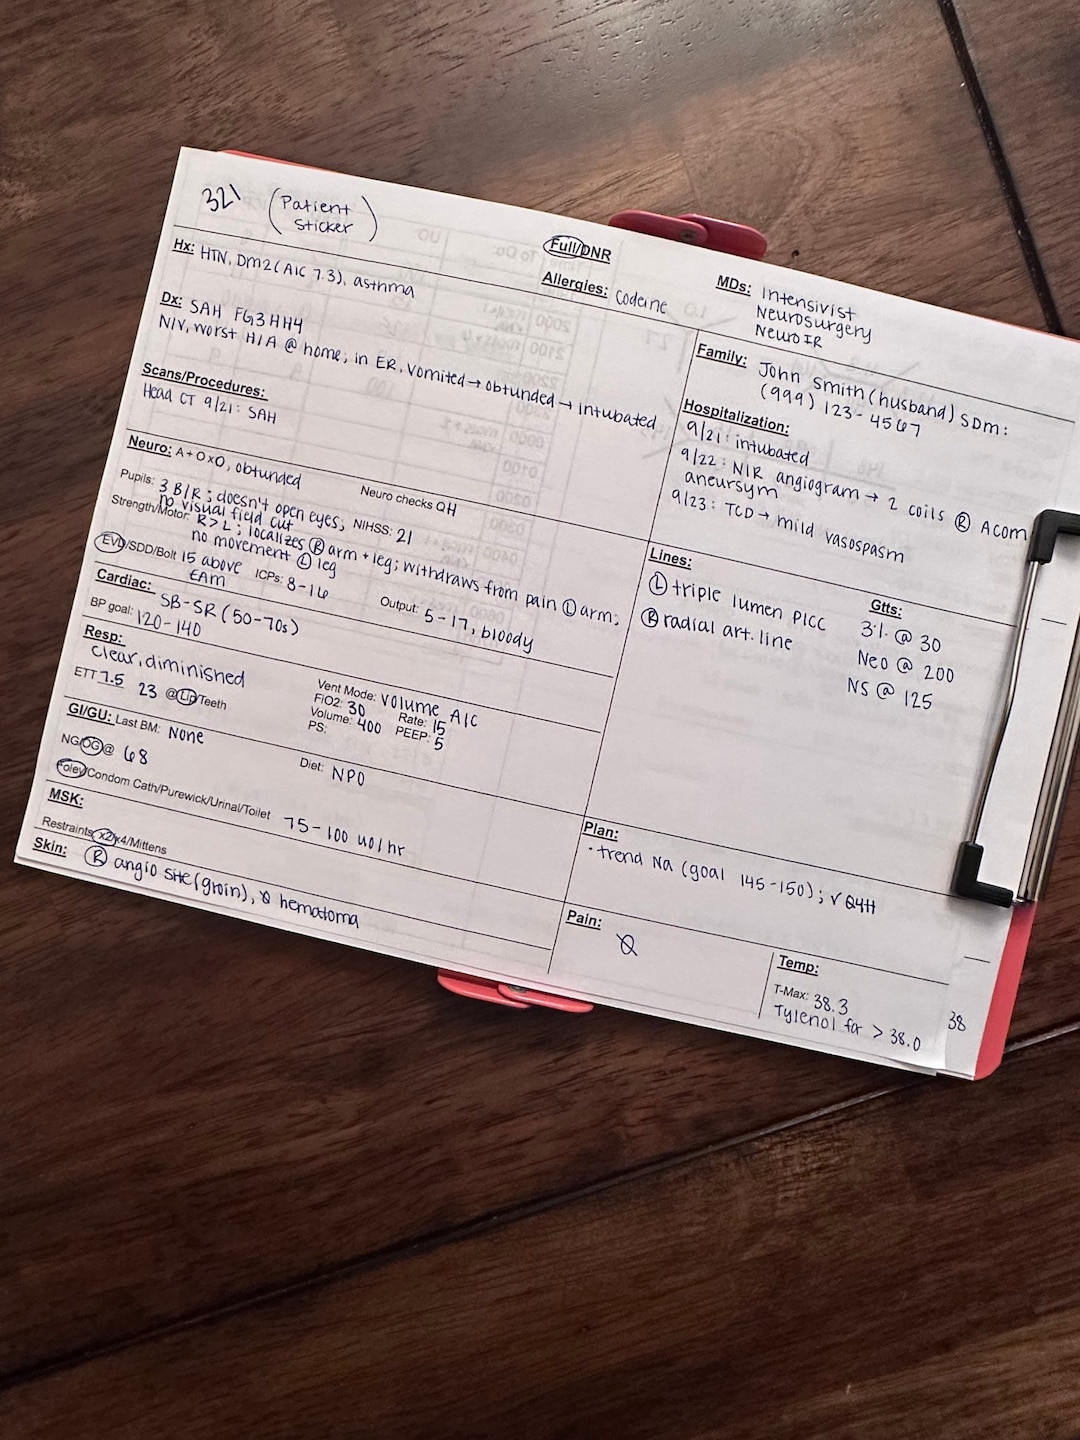 321 (Patient Sticker)
Full/DNR
Hx: HTN, DM2 (A1C 7.3), asthma
Allergies: Codeine
MDs: Intensivist
Neurosurgery
Neuro IR
Dx: SAH FG3HH4
N/V, worst H/A @ home; in ER, vomited → obtunded → intubated
Family: John Smith (husband) SDM:
(999) 123-4567
Scans/Procedures:
Head CT 9/21: SAH
Hospitalization:
9/21: intubated
9/22: NIR angiogram → 2 coils Ⓡ Acom
aneursym
9/23: TCD → mild vasospasm
Neuro: A+Ox0, obtunded
Neuro checks QH
Pupils: 3 B/R; doesn't open eyes; NIHSS: 21
no visual field cut
Strength/Motor: R>L; localizes Ⓡ arm + leg; withdraws from pain Ⓛ arm;
no movement Ⓛ leg
EVD/SDD/Bolt 15 above ICPs: 8-16 Output: 5-17, bloody
EAM
Lines:
Ⓛ triple lumen PICC
Ⓡ radial art. line
Gtts:
3% @ 30
Neo @ 200
NS @ 125
Cardiac: SB-SR (50-70s)
BP goal: 120-140
Resp:
clear, diminished
ETT 7.5 23 @ Lip/Teeth
Vent Mode: Volume A/C
FiO2: 30 Rate: 15
Volume: 400 PEEP: 5
PS:
GI/GU: Last BM: None
NG/OG @ 68
Diet: NPO
Foley/Condom Cath/Purewick/Urinal/Toilet 75-100 uo/hr
MSK:
Restraints x2/x4/Mittens
Skin: Ⓡ angio site (groin), Ø hematoma
Plan:
· trend Na (goal 145-150); ✓ Q4H
Pain:
Ø
Temp:
T-Max: 38.3
Tylenol for > 38.0
38